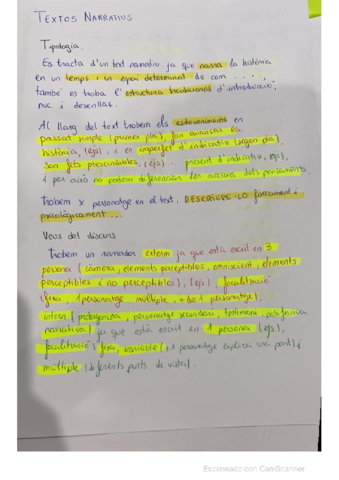 TEXTOS NARRATIUS
Tipologia.
Es tracta d'un text narratiu ja que narra la història
en un temps i un espai determinat de com ....,
també es troba l'estructura tradicional d'introducció,
nuc i desenllaç.
Al llarg del text trobem els esdeveniments en
passat simple (primer pla), fan avançar la
història, (ejs), i en imperfet d'indicatiu (segon pla)
són fets prescindibles, (ejs).. present d'indicatiu, ejs),
i per això no podem diferenciar les accions dels pensaments.
Trobem x personatge en el text, DESCRIURE-LO físicament i
psicològicament...
Veus del discurs
Trobem un narrador extern ja que està escrit en 3
persona (càmera, elements perceptibles, omniscient, elements
perceptibles i no perceptibles), (ejs), focalització
(fixa, 1 personatge, múltiple, + de 1 personatge),
intern (protagonista, personatge secundari, testimoni, polifonia
narrativa) ja que està escrit en 1 persona (ejs),
focalització: fixa, variable (i 1 personatge explica una part) i
múltiple (diferents punts de vista).
Escaneado con CamScanner